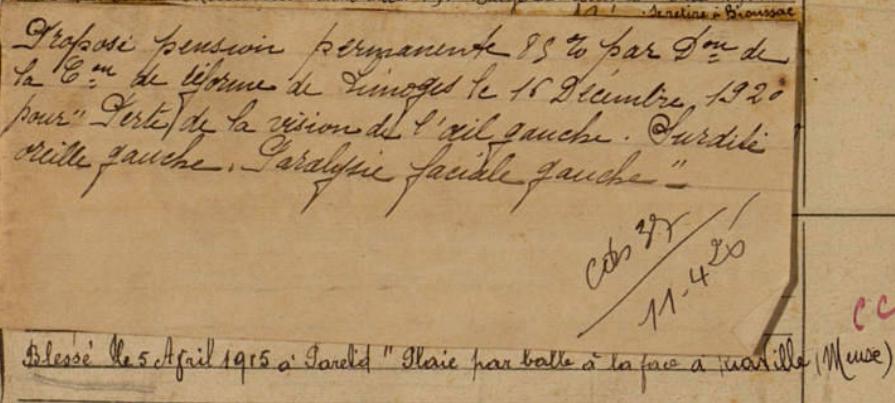 se retire à Brioussac
Proposé pension permanente 85 % par Don de
la Con de réforme de Limoges le 16 Décembre 1920
pour " Perte de la vision de l'œil gauche. Surdité
oreille gauche. Paralysie faciale gauche "
11-4
Blessé le 5 April 1915 à Pareid " Plaie par balle à la face à (Meuse)